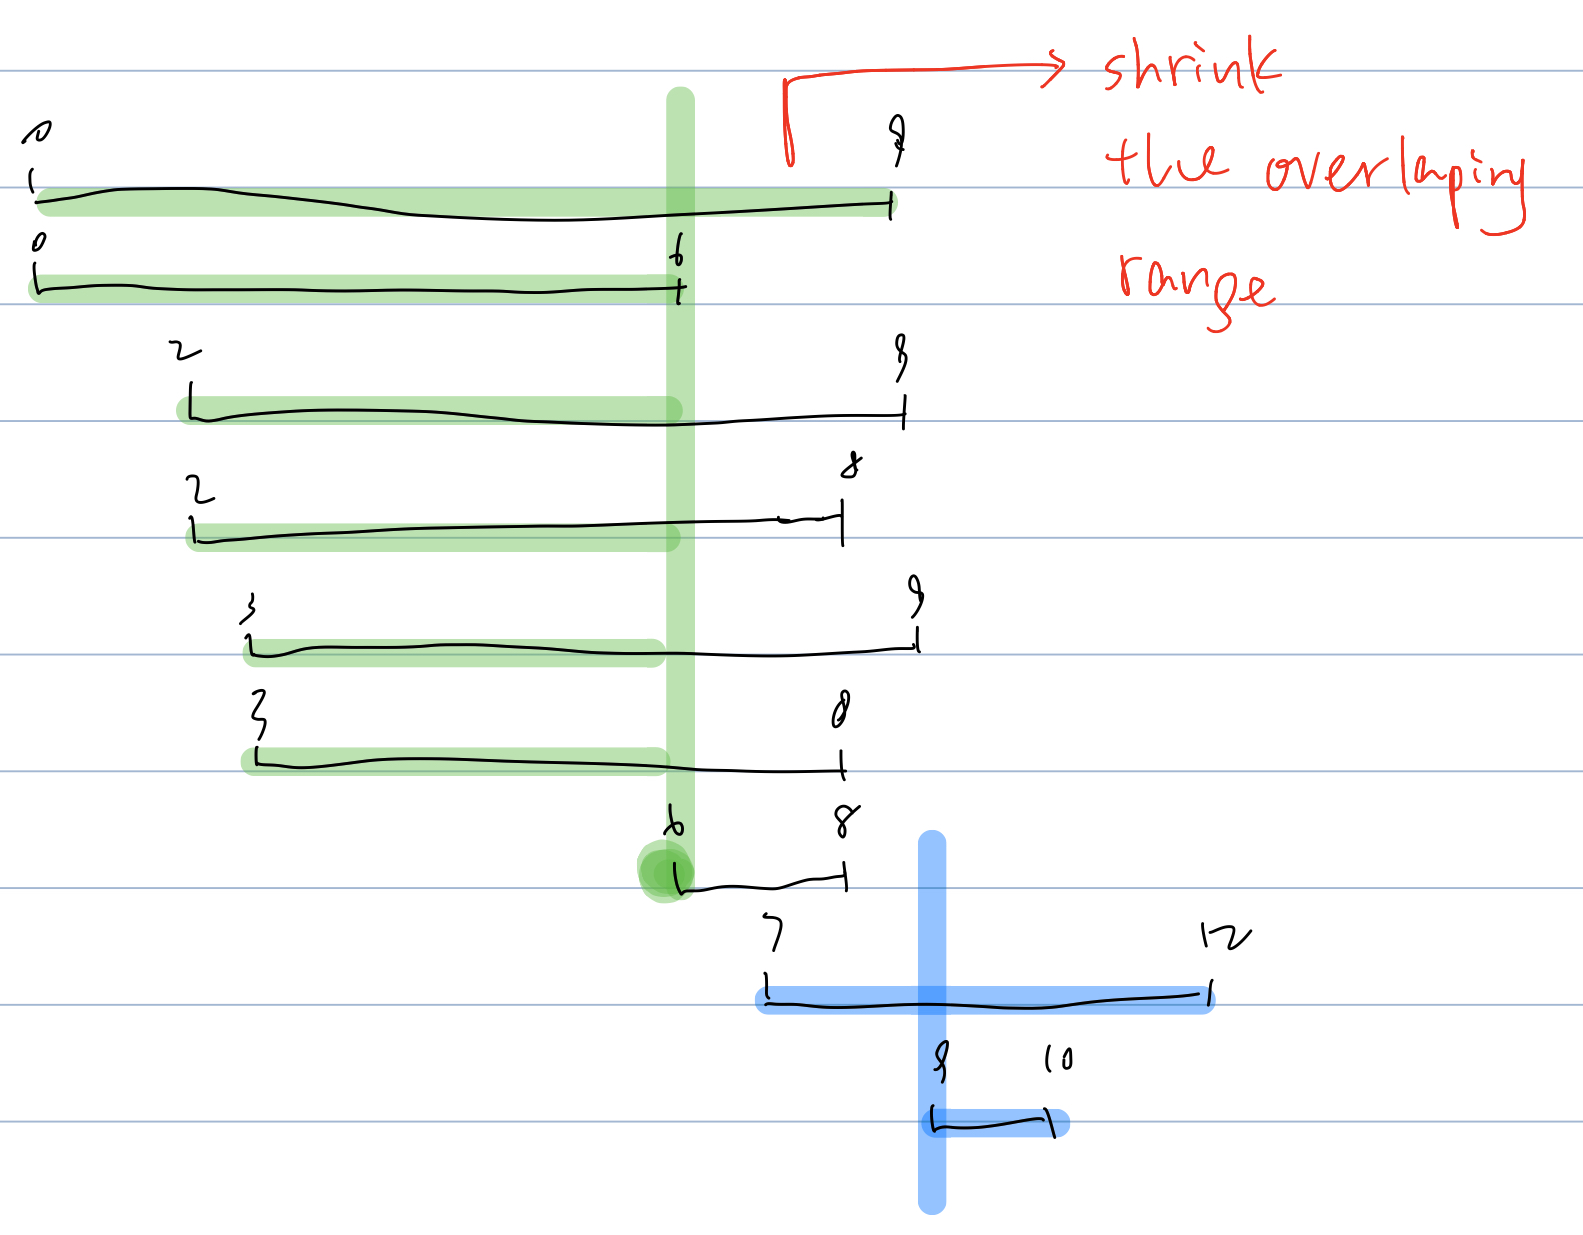 shrink
0 9
the overlaping
0 6
range
2 9
2 8
3 9
3 8
6 8
7 12
9 10